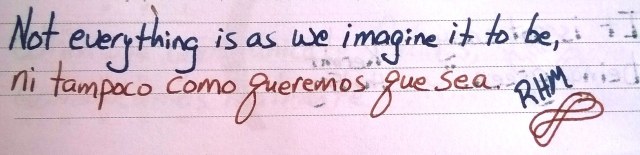 Not everything is as we imagine it to be,
ni tampoco como queremos que sea.
RHM